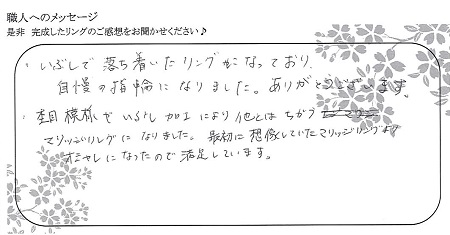 職人へのメッセージ
是非 完成したリングのご感想をお聞かせください♪
・いぶしで落ち着いたリングになっており、
自慢の指輪になりました。ありがとうございます。
・杢目模様でいぶし加工により他とはちがう
マリッジリングになりました。最初に想像していたマリッジリングより
オシャレになったので満足しています。